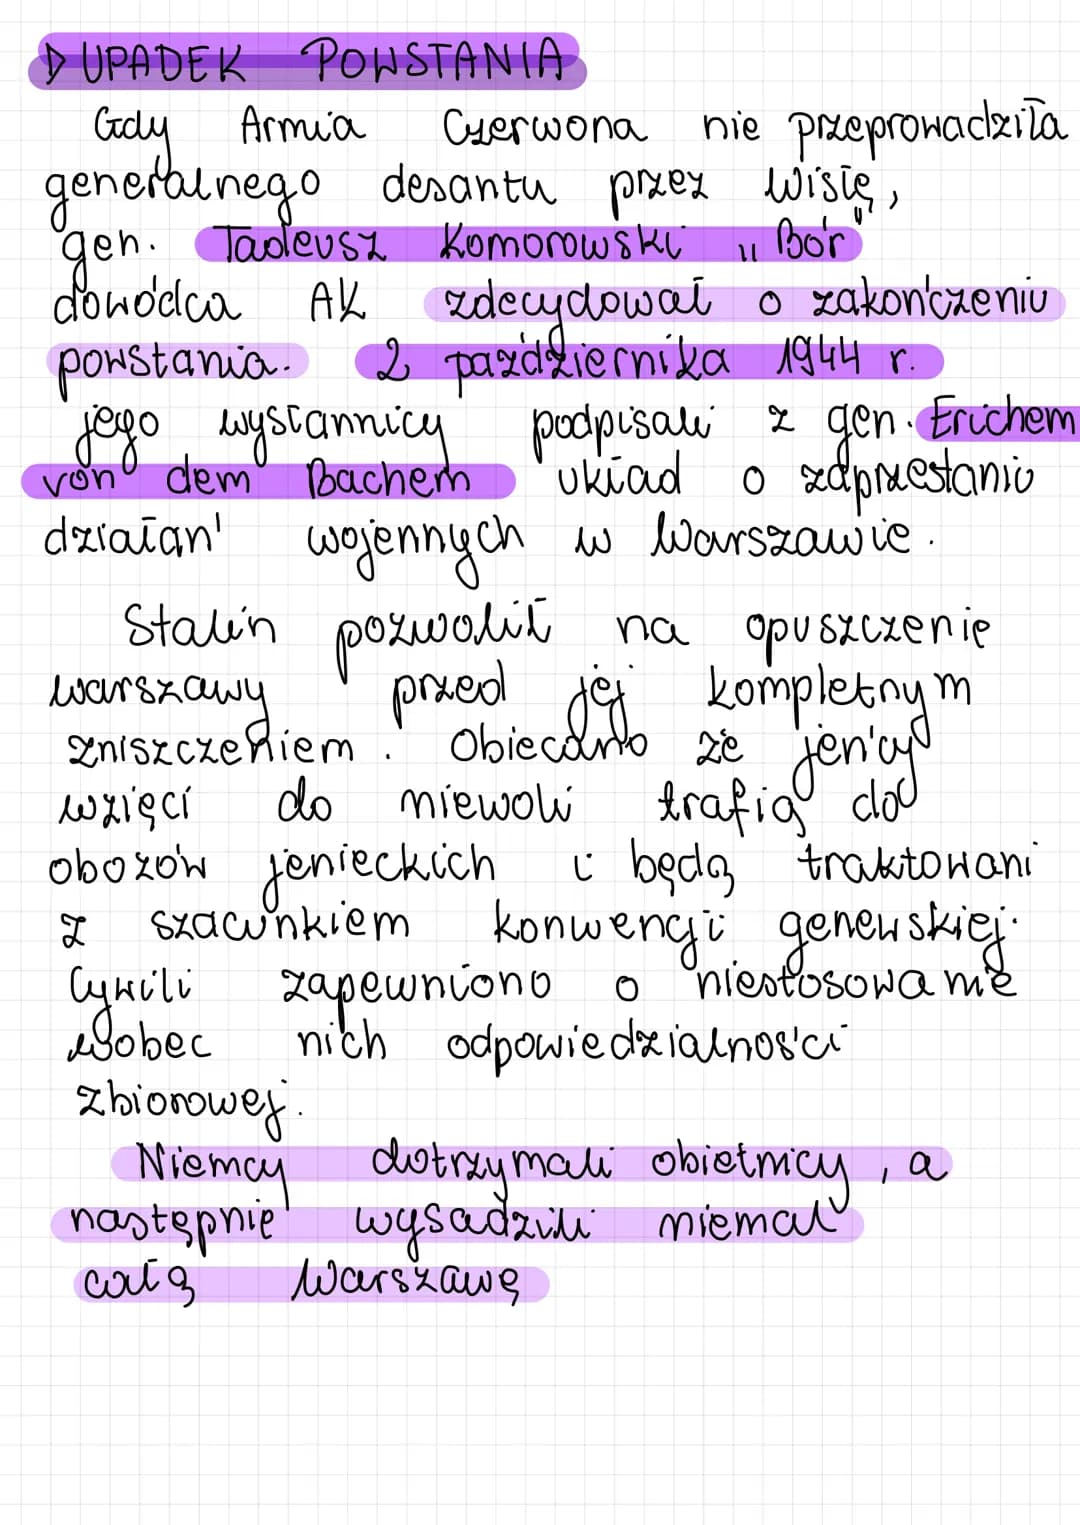 ▷ UPADEK POWSTANIA
Gdy Armia Czerwona nie przeprowadziła
generalnego desantu przez Wisłę,
gen. Tadeusz Komorowski „Bór"
dowódca AK zdecydował o zakończeniu
powstania. 2 października 1944 r.
jego wysłannicy podpisali z gen. Erichem
von dem Bachem układ o zaprzestaniu
działań wojennych w Warszawie.
Stalin pozwolił na opuszczenie
warszawy przed jej kompletnym
zniszczeniem. Obiecano że jeńcy
wzięci do niewoli trafią do
obozów jenieckich i będą traktowani
z szacunkiem konwencji genewskiej.
Cywili zapewniono o niestosowanie
wobec nich odpowiedzialności
zbiorowej.
Niemcy dotrzymali obietnicy, a
następnie wysadzili niemal
całą Warszawę